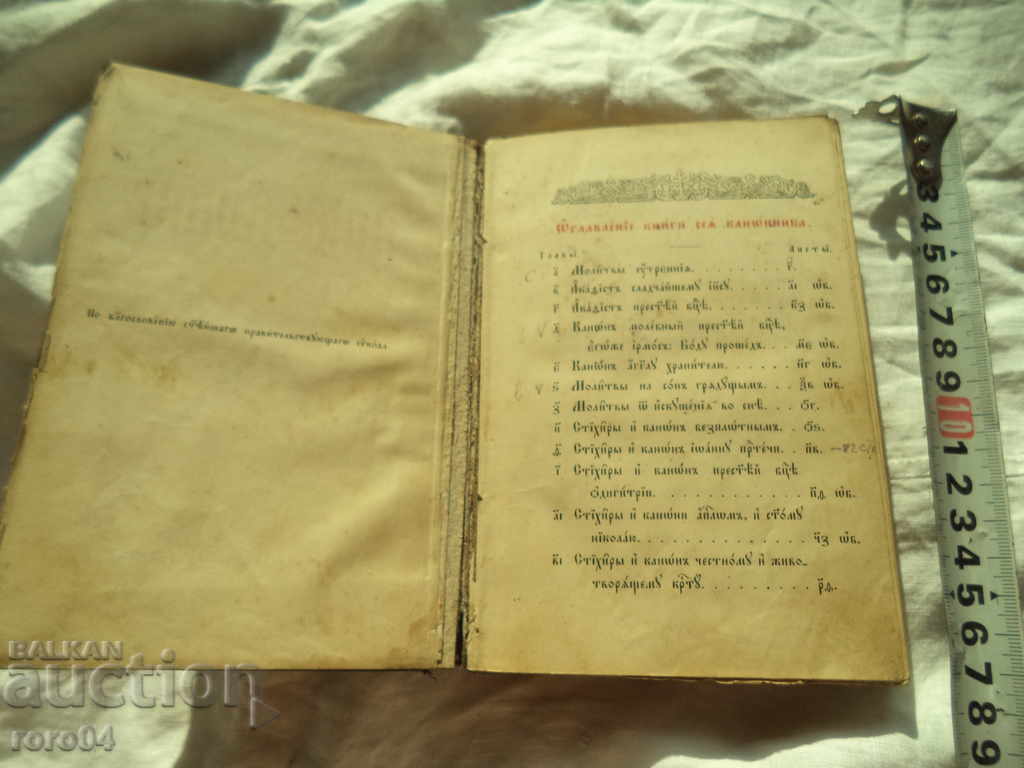 По благословенїю ст҃ѣ́йшагѡ прави́тельствꙋющагѡ сѷно́да.
Ѡ҆главле́нїе кни́ги сеѧ̀ канѡ́нника.
Главы̀. Листы̀.
а҃ Моли̑твы ᲂу҆́трєннїѧ . . . . . . . . г҃.
в҃ А҆ка́ѳїстъ сладча́йшемꙋ і҆и҃сꙋ . . . . а҃і ѡ҆б.
г҃ А҆ка́ѳїстъ прест҃ѣ́й бц҃ѣ . . . . . . к҃з ѡ҆б.
д҃ Канѡ́нъ моле́бный прест҃ѣ́й бц҃ѣ,
є҆гѡ́же і҆рмо́съ: Во́дꙋ проше́дъ . . м҃в ѡ҆б.
є҃ Канѡ́нъ а҆́гг҃лꙋ храни́телю . . . . . н҃г ѡ҆б.
ѕ҃ Моли̑твы на со́нъ грѧдꙋ́щымъ . . . ѯ҃в ѡ҆б.
з҃ Моли̑твы ѿ и҆скꙋше́нїѧ во снѣ̀ . . . ѻ҃г.
и҃ Стїхи̑ры и҆ канѡ́нъ безплѡ́тнымъ . . ѻ҃ѕ.
ѳ҃ Стїхи̑ры и҆ канѡ́нъ і҆ѡа́ннꙋ прⷣте́чи . п҃в. —82
і҃ Стїхи̑ры и҆ канѡ́нъ прест҃ѣ́й бц҃ѣ
ѻ҆диги́трїи . . . . . . . . . . . п҃д ѡ҆б.
а҃і Стїхи̑ры и҆ канѡ́ни а҆пⷭ҇лѡмъ, и҆ ст҃о́мꙋ
нїкола́ю . . . . . . . . . . . . ч҃з ѡ҆б.
в҃і Стїхи̑ры и҆ канѡ́нъ честно́мꙋ и҆ живо-
творѧ́щемꙋ крⷭ҇тꙋ̀ . . . . . . . . р҃д.
3 4 5 6 7 8 9 10 1 2 3 4 5 6 7 8 9
BALKAN
auction
roro04